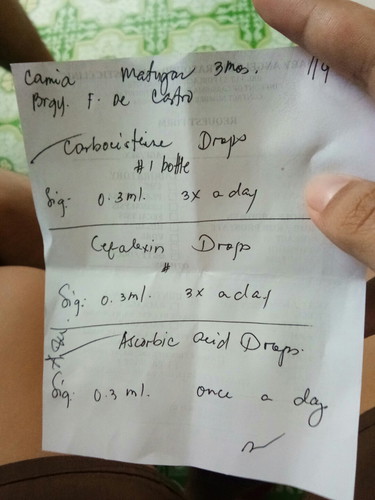 Camia Matugas 3 mos. 1/4
Brgy. F. De Castro
Carbocisteine Drops
#1 bottle
Sig: 0.3 ml. 3x a day
Cefalexin Drops
#
Sig: 0.3 ml. 3x a day
Ascorbic acid Drops.
Sig: 0.3 ml. once a day
REQUEST FORM